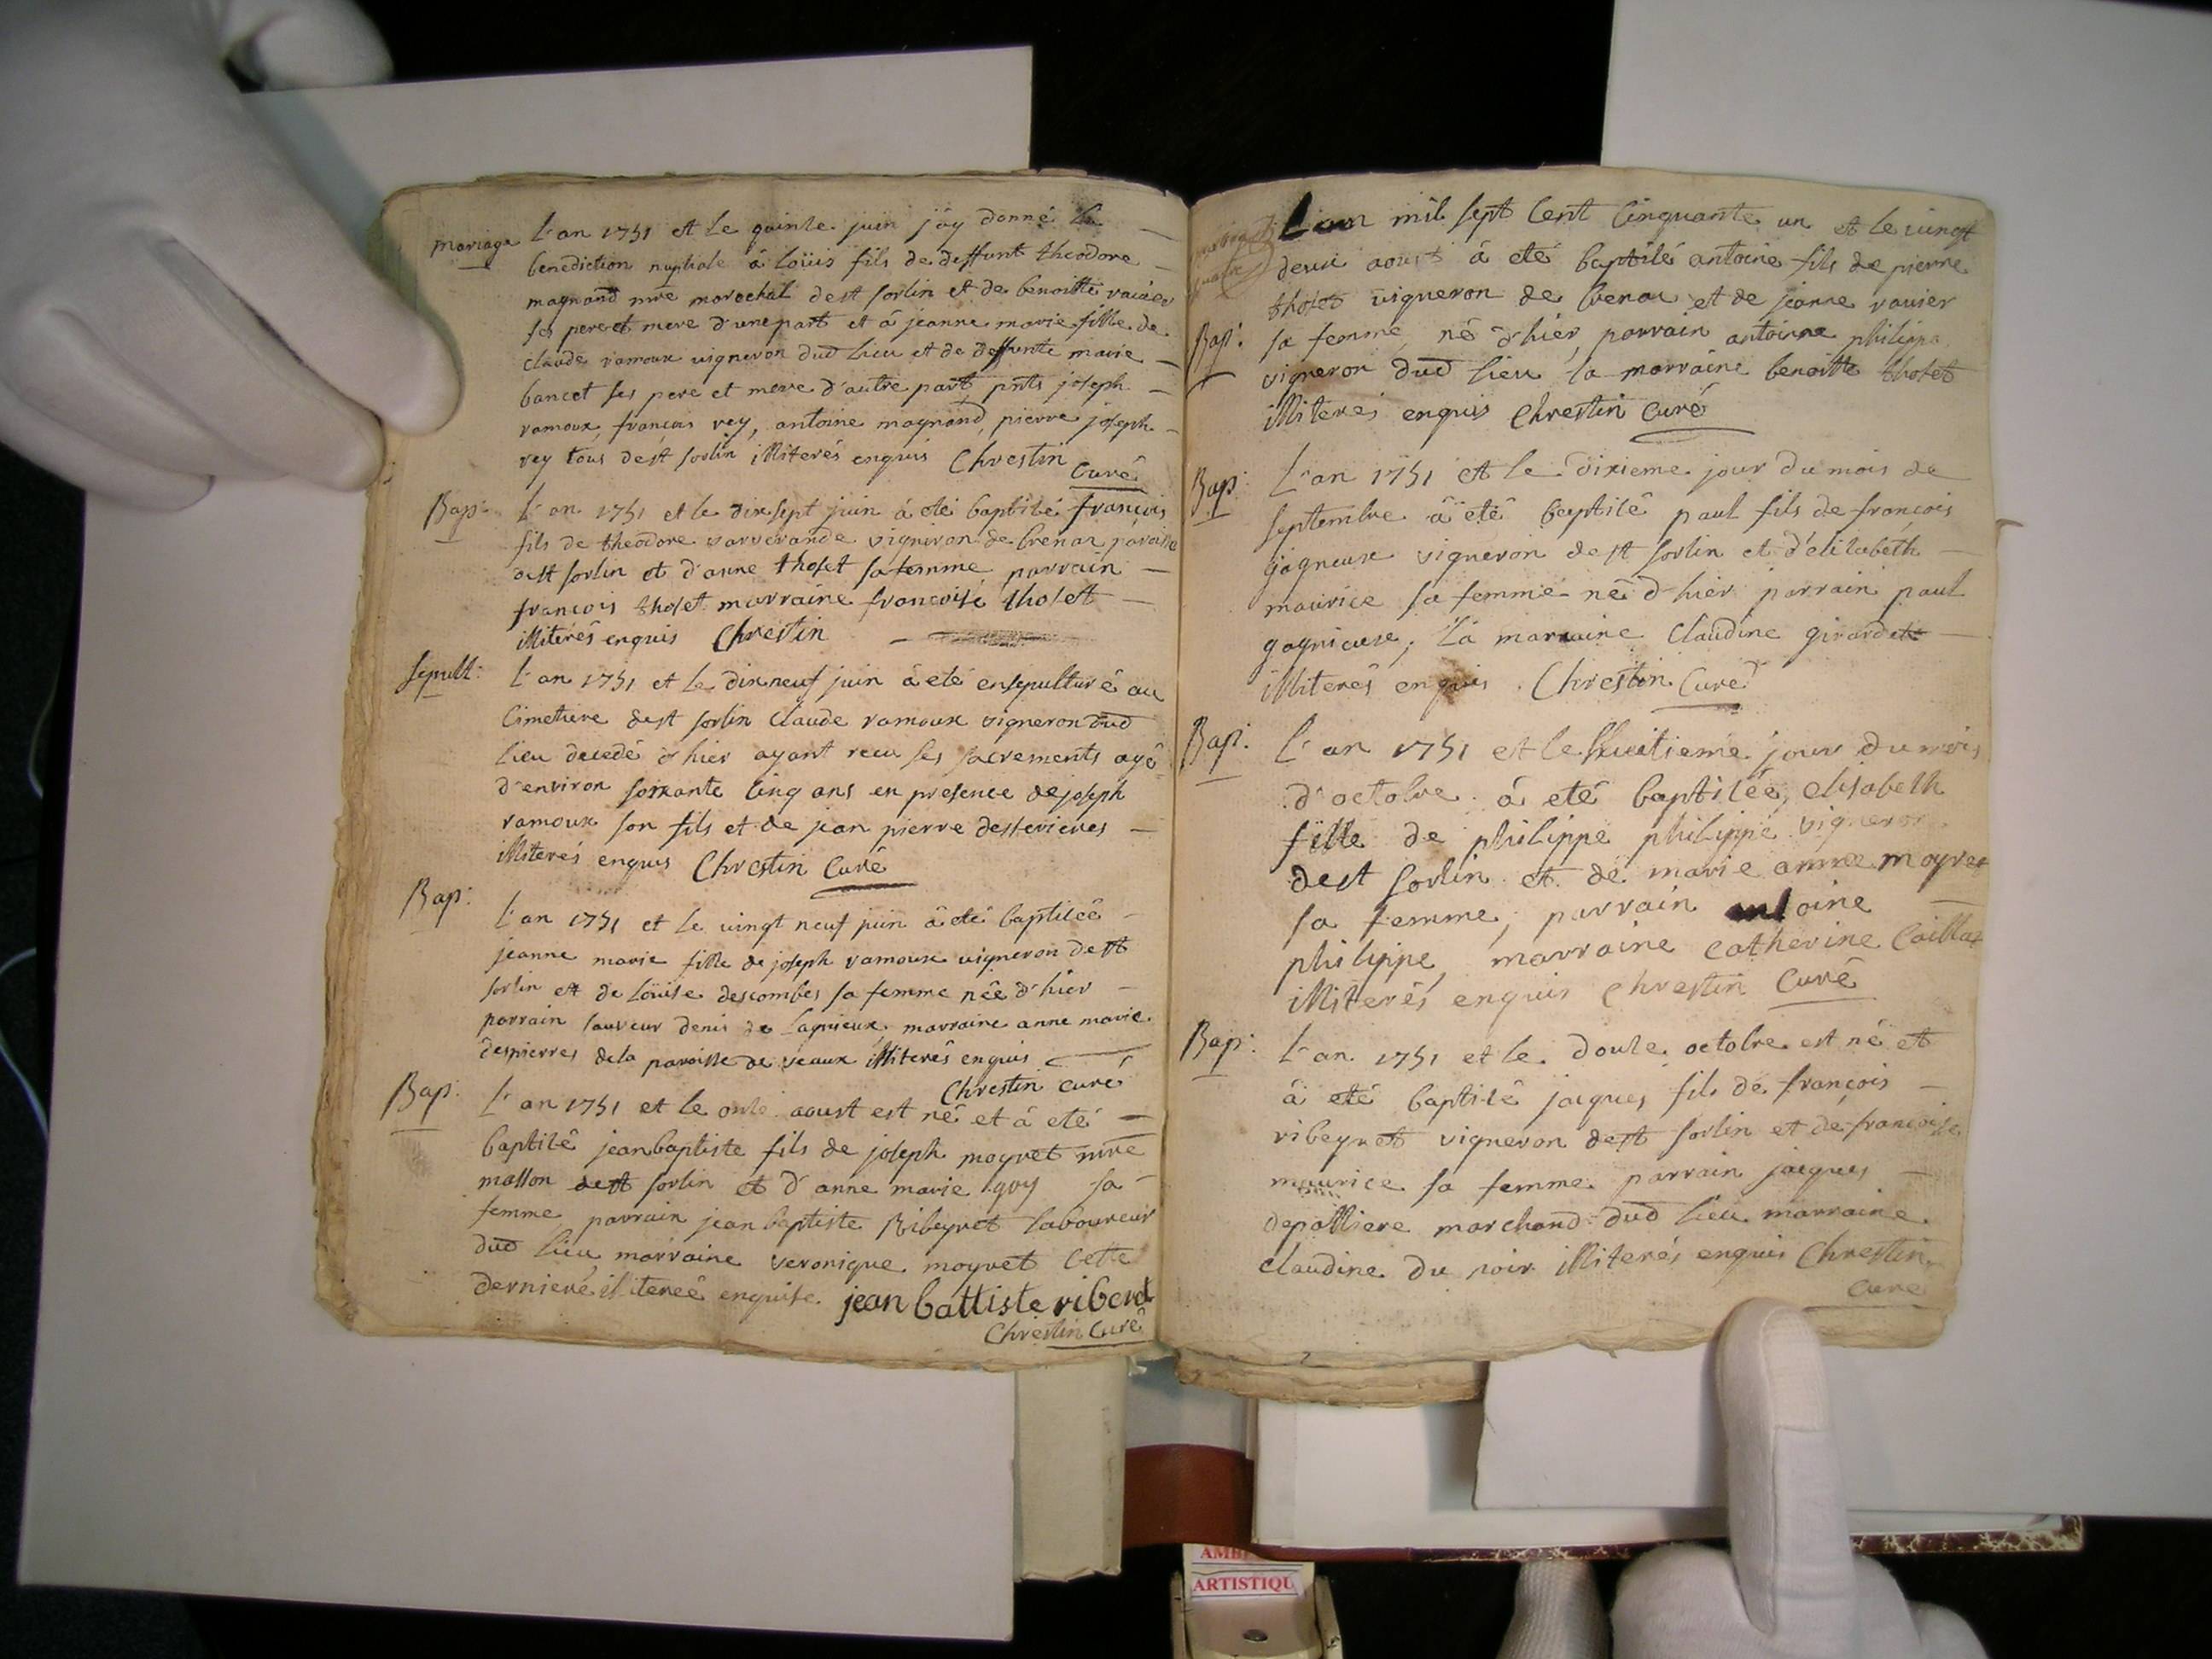 mariage
L'an 1751 et le quinze juin j'ay donné la
benediction nuptiale à loüis fils de deffunt theodore
magnand mre marechal dest sorlin et de benoitte
ses pere et mere d'une part et à jeanne marie fille de
claude ramoux vigneron dud lieu et de deffunte marie
bancet ses pere et mere d'autre part, pnts joseph
ramoux, françois rey, antoine magnand, pierre joseph
rey tous dest sorlin illiterés enquis Chrestin
Curé
Bap:
L'an 1751 et le dix sept juin à eté baptisé françois
fils de theodore varverande vigneron de brenar paroisse
dest sorlin et d'anne tholet sa femme, parrain
françois tholet marraine françoise tholet
illiterés enquis Chrestin
sepult:
L'an 1751 et le dix neuf juin à eté ensepulturé au
Cimetiere dest sorlin claude ramoux vigneron dud
lieu decedé d'hier ayant recu ses sacrements agé
d'environ soixante cinq ans en presence de joseph
ramoux son fils et de jean pierre
illiterés enquis Chrestin Curé
Bap:
L'an 1751 et le vingt neuf juin à eté baptisée
jeanne marie fille de joseph ramoux vigneron dest
sorlin et de loüise descombes sa femme née d'hier
parrain sauveur denis de lagnieux, marraine anne marie
despierres de la paroisse de veaux illiterés enquis
Chrestin curé
Bap:
L'an 1751 et le onze aoust est né et à eté
baptisé jean baptiste fils de joseph moyret mre
masson dest sorlin et d'anne marie goy sa
femme parrain jean baptiste Ribeyret laboureur
dud lieu, marraine veronique moyret cette
derniere illiterée enquise. jean battiste riberd
Chrestin Curé
L'an mil sept cent cinquante un et le vingt
deux aoust à eté baptisé antoine fils de pierre
tholet vigneron de brenar et de jeanne ravier
Bap:
sa femme, né d'hier, parrain antoine philippe
vigneron dud lieu la marraine benoitte tholet
illiterés enquis Chrestin Curé
Bap:
L'an 1751 et le dixieme jour du mois de
septembre à eté baptisé paul fils de françois
gagneux vigneron dest sorlin et d'elisabeth
maurice sa femme né d'hier parrain paul
gagnieux, la marraine Claudine girardet
illiterés enquis. Chrestin Curé
Bap:
L'an 1751 et le huitieme jour du mois
d'octobre à eté baptisée, elisabeth
fille de philippe philippe vigneron
dest sorlin et de marie anne moyret
sa femme, parrain antoine
philippe, marraine catherine Caillat
illiterés enquis Chrestin Curé
Bap:
L'an 1751 et le douze octobre est né et
à eté baptisé jacques fils de françois
ribeyret vigneron dest sorlin et de françoise
maurice sa femme parrain jacques
depalliere marchand dud lieu marraine
claudine du soir illiterés enquis Chrestin
Curé
ARTISTIQU